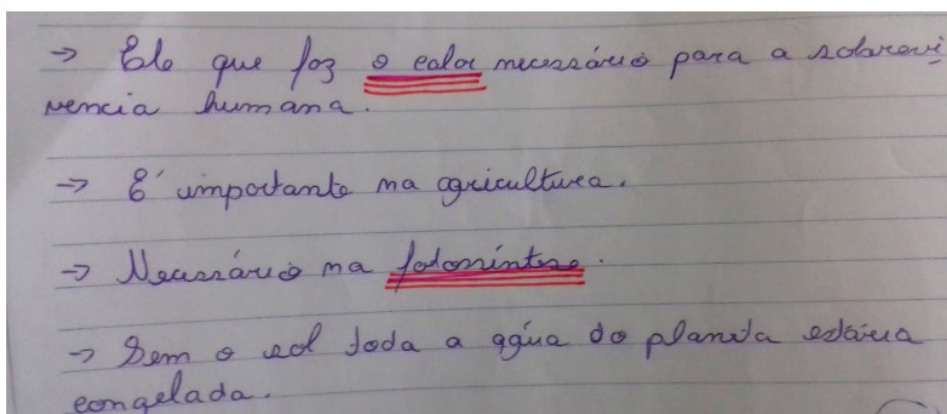 → Ele que faz o calor necessário para a sobrevi
vencia humana.
→ É importante na agricultura.
→ Necessário na fotossíntese.
→ Sem o sol toda a agúa do planeta estaria
congelada.